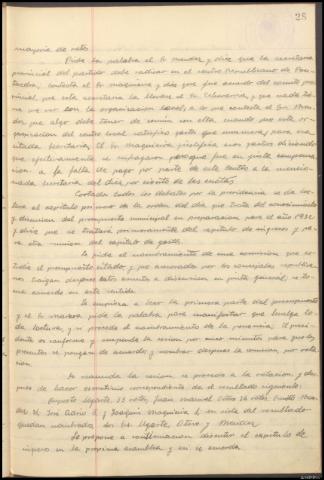 28
mayoria de votos
Pide la palabra el Sr. Mendez y dice que la secretaria
provincial del partido debe radicar en el centro Republicano de Pon-
tevedra, contesta el Sr. maquieira y dice que fue acuerdo del comité pro-
vincial, que esta secretaria la llevara el Sr. Echeverria, y que nada tie-
ne que ver con la organizacion local, a lo que contesta el Sr. Men-
dez que algo debe tener de comun con ella, cuando por esta or-
ganizacion del centro local satisfizo gasto que enumera, para la
citada secretaria. El Sr. maquieira justifica esos gastos diciendo
que efectivamente se pagaron porque fue en justa compensa-
cion a la falta de pago por parte de este centro a la mencio-
nada secretaria del diez por ciento de las cuotas.
Cortados todos los debates por la presidencia se da lec-
tura al capitulo primero de la orden del dia que trata del conocimiento
y discusion del presupuesto municipal en preparacion para el año 1932
y dice que se tratará primeramente del capitulo de ingresos y pa-
ra otra reunion del capitulo de gastos.
Se pide el nombramiento de una comision que es-
tudie el presupuesto citado y que asesorada por los concejales republica-
nos traigan despues este asunto a discusion en junta general, se to-
ma acuerdo en este sentido.
Se empieza a leer la primera parte del presupuesto
y el Sr. pide la palabra para manifestar que huelga la
lectura, y se proceda al nombramiento de la ponencia. El presi-
dente es conforme y suspende la sesion por cinco minutos para que los
presentes se pongan de acuerdo y nombrar despues la comision por vota-
cion.
Se reanuda la sesion se procede a la votacion y des-
pues de hacer escrutinio correspondiente da el resultado siguiente:
Augusto Ugarte 33 votos, Juan Manuel Otero 26 votos
José Adrio 2 y Joaquin Maquieira 2, en vista del resultado
quedan nombrados los Srs. Ugarte, Otero y
Se propone a continuacion discutir el capitulo de
ingresos en la proxima asamblea y asi se acuerda